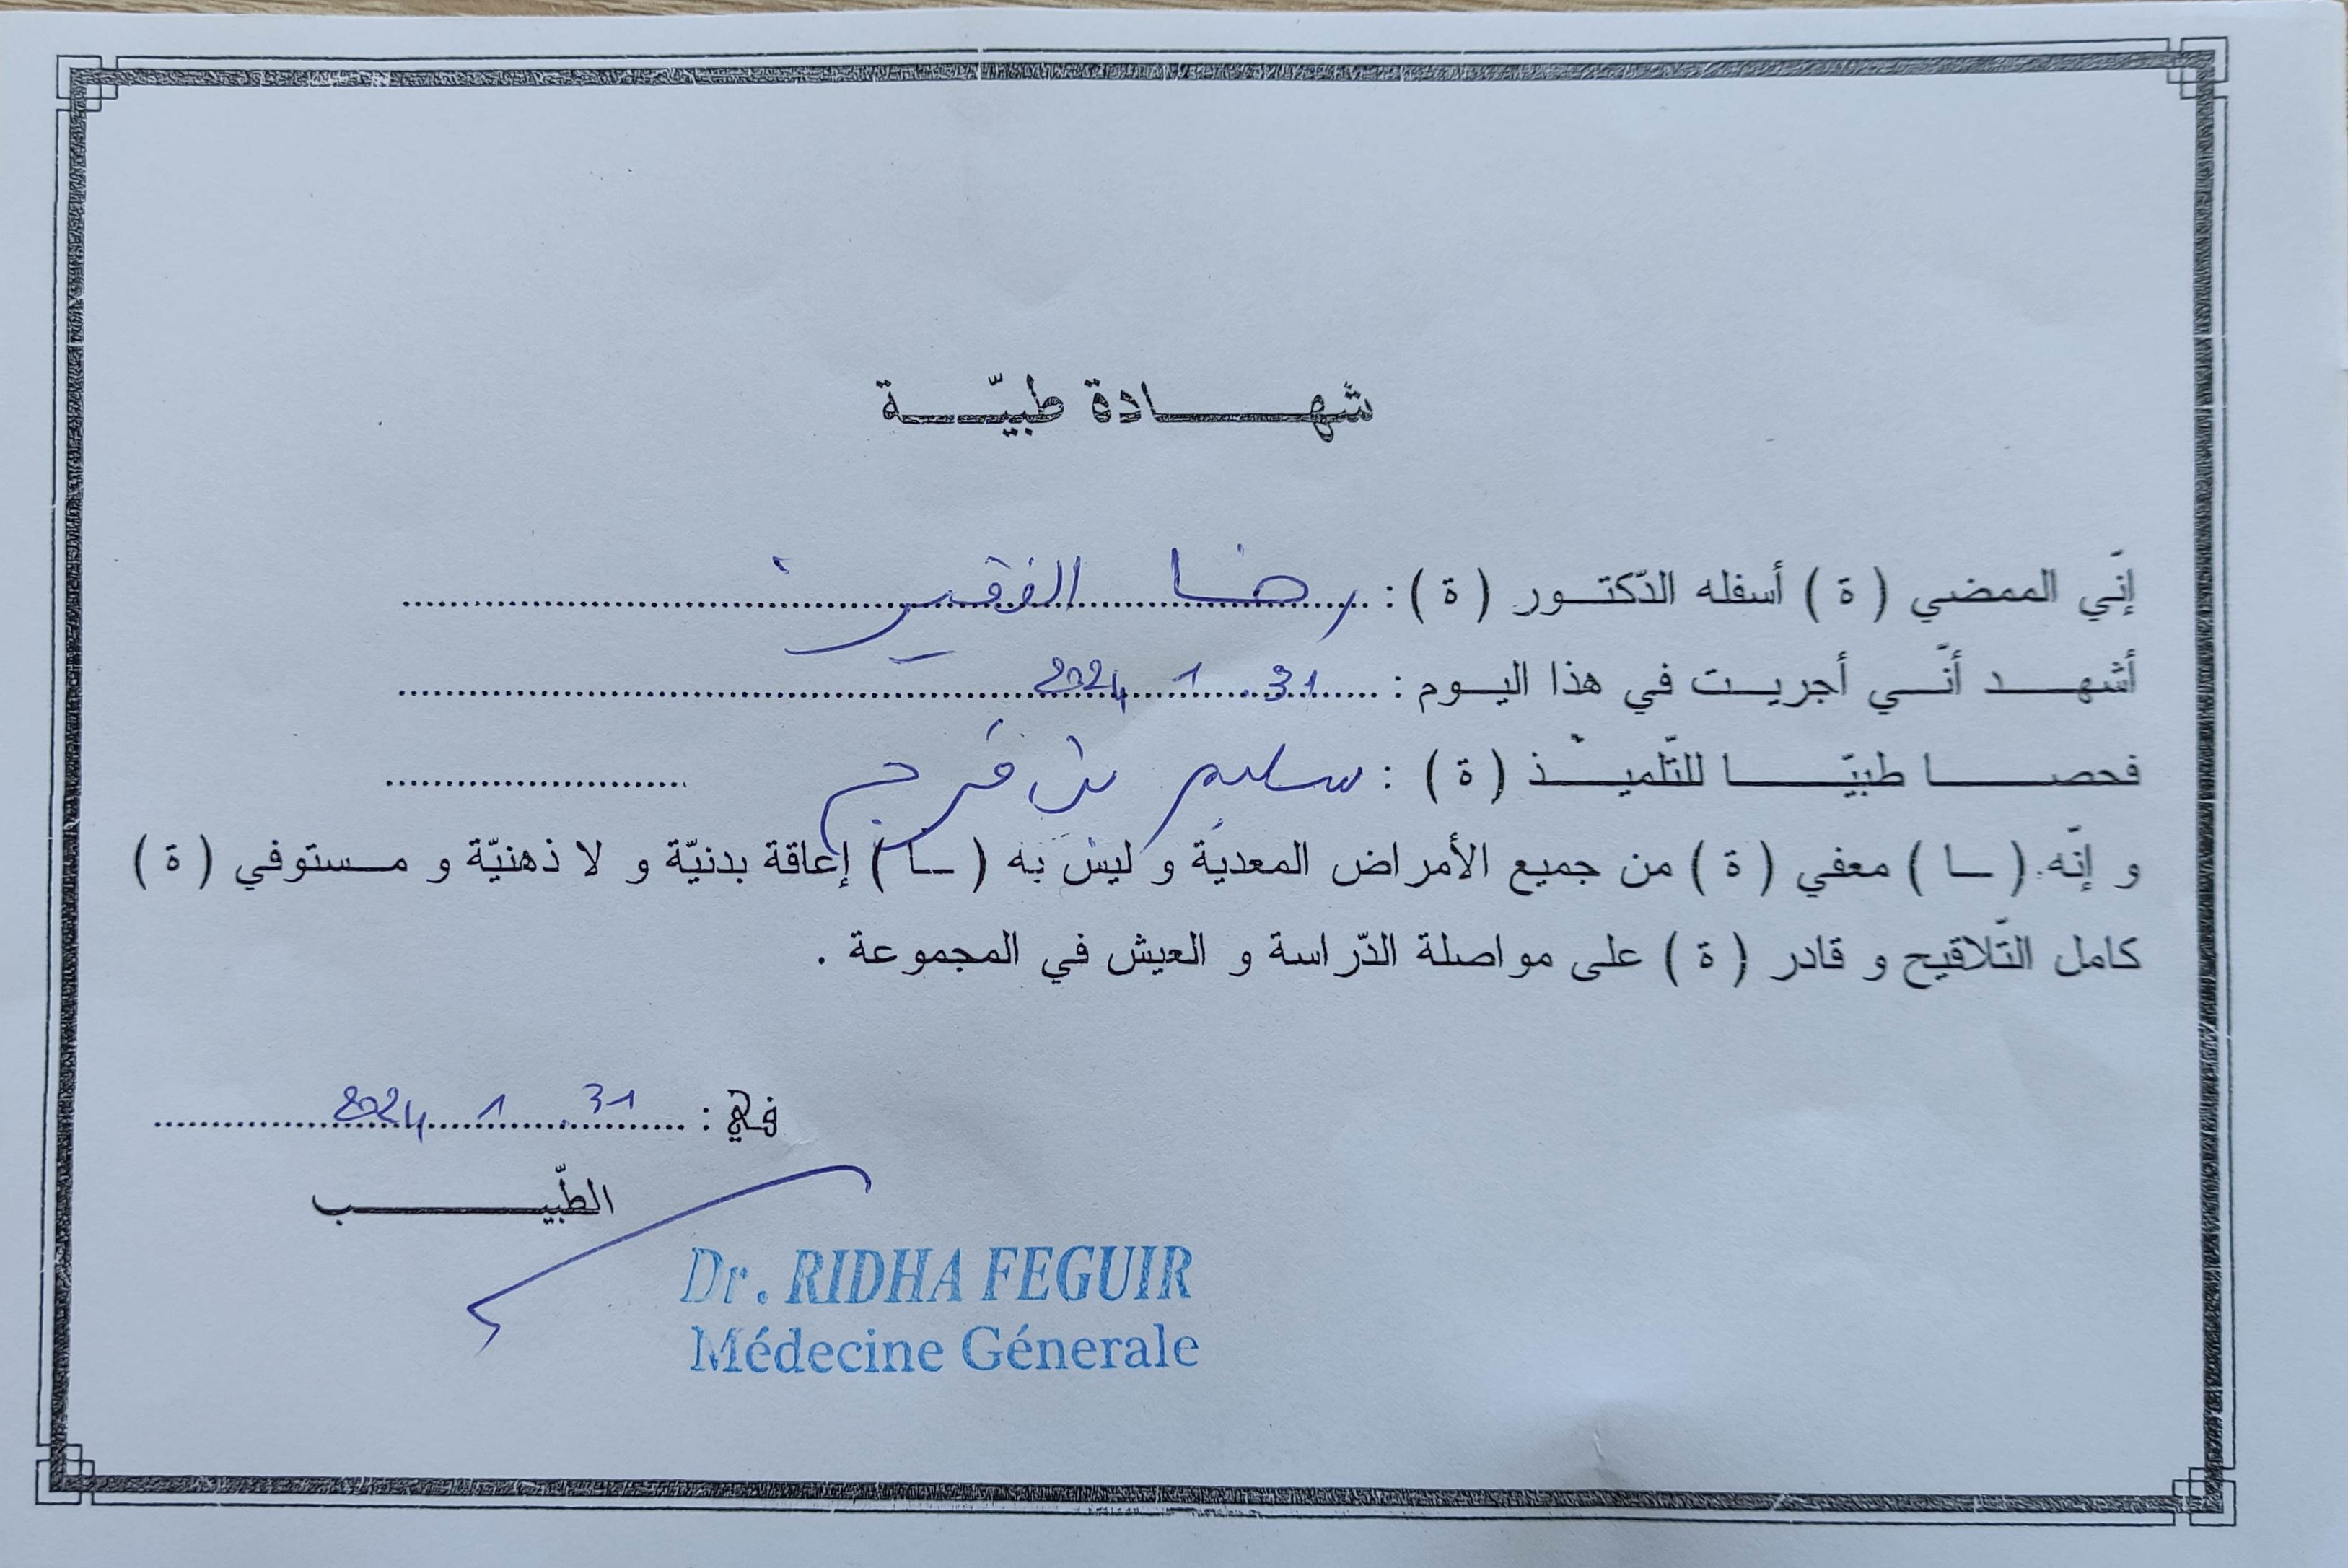 شهادة طبيّة
إنّي الممضي ( ة ) أسفله الدّكتور ( ة ) : رضا الفقير
أشهد أنّي أجريت في هذا اليوم : 31 1 2024
فحصا طبيّا للتّلميذ ( ة ) : سليم بن فرج
و إنّه ( ـا ) معفي ( ة ) من جميع الأمراض المعدية و ليس به ( ـا ) إعاقة بدنيّة و لا ذهنيّة و مستوفي ( ة )
كامل التّلاقيح و قادر ( ة ) على مواصلة الدّراسة و العيش في المجموعة .
في : 31 1 2024
الطّبيب
Dr. RIDHA FEGUIR
Médecine Génerale